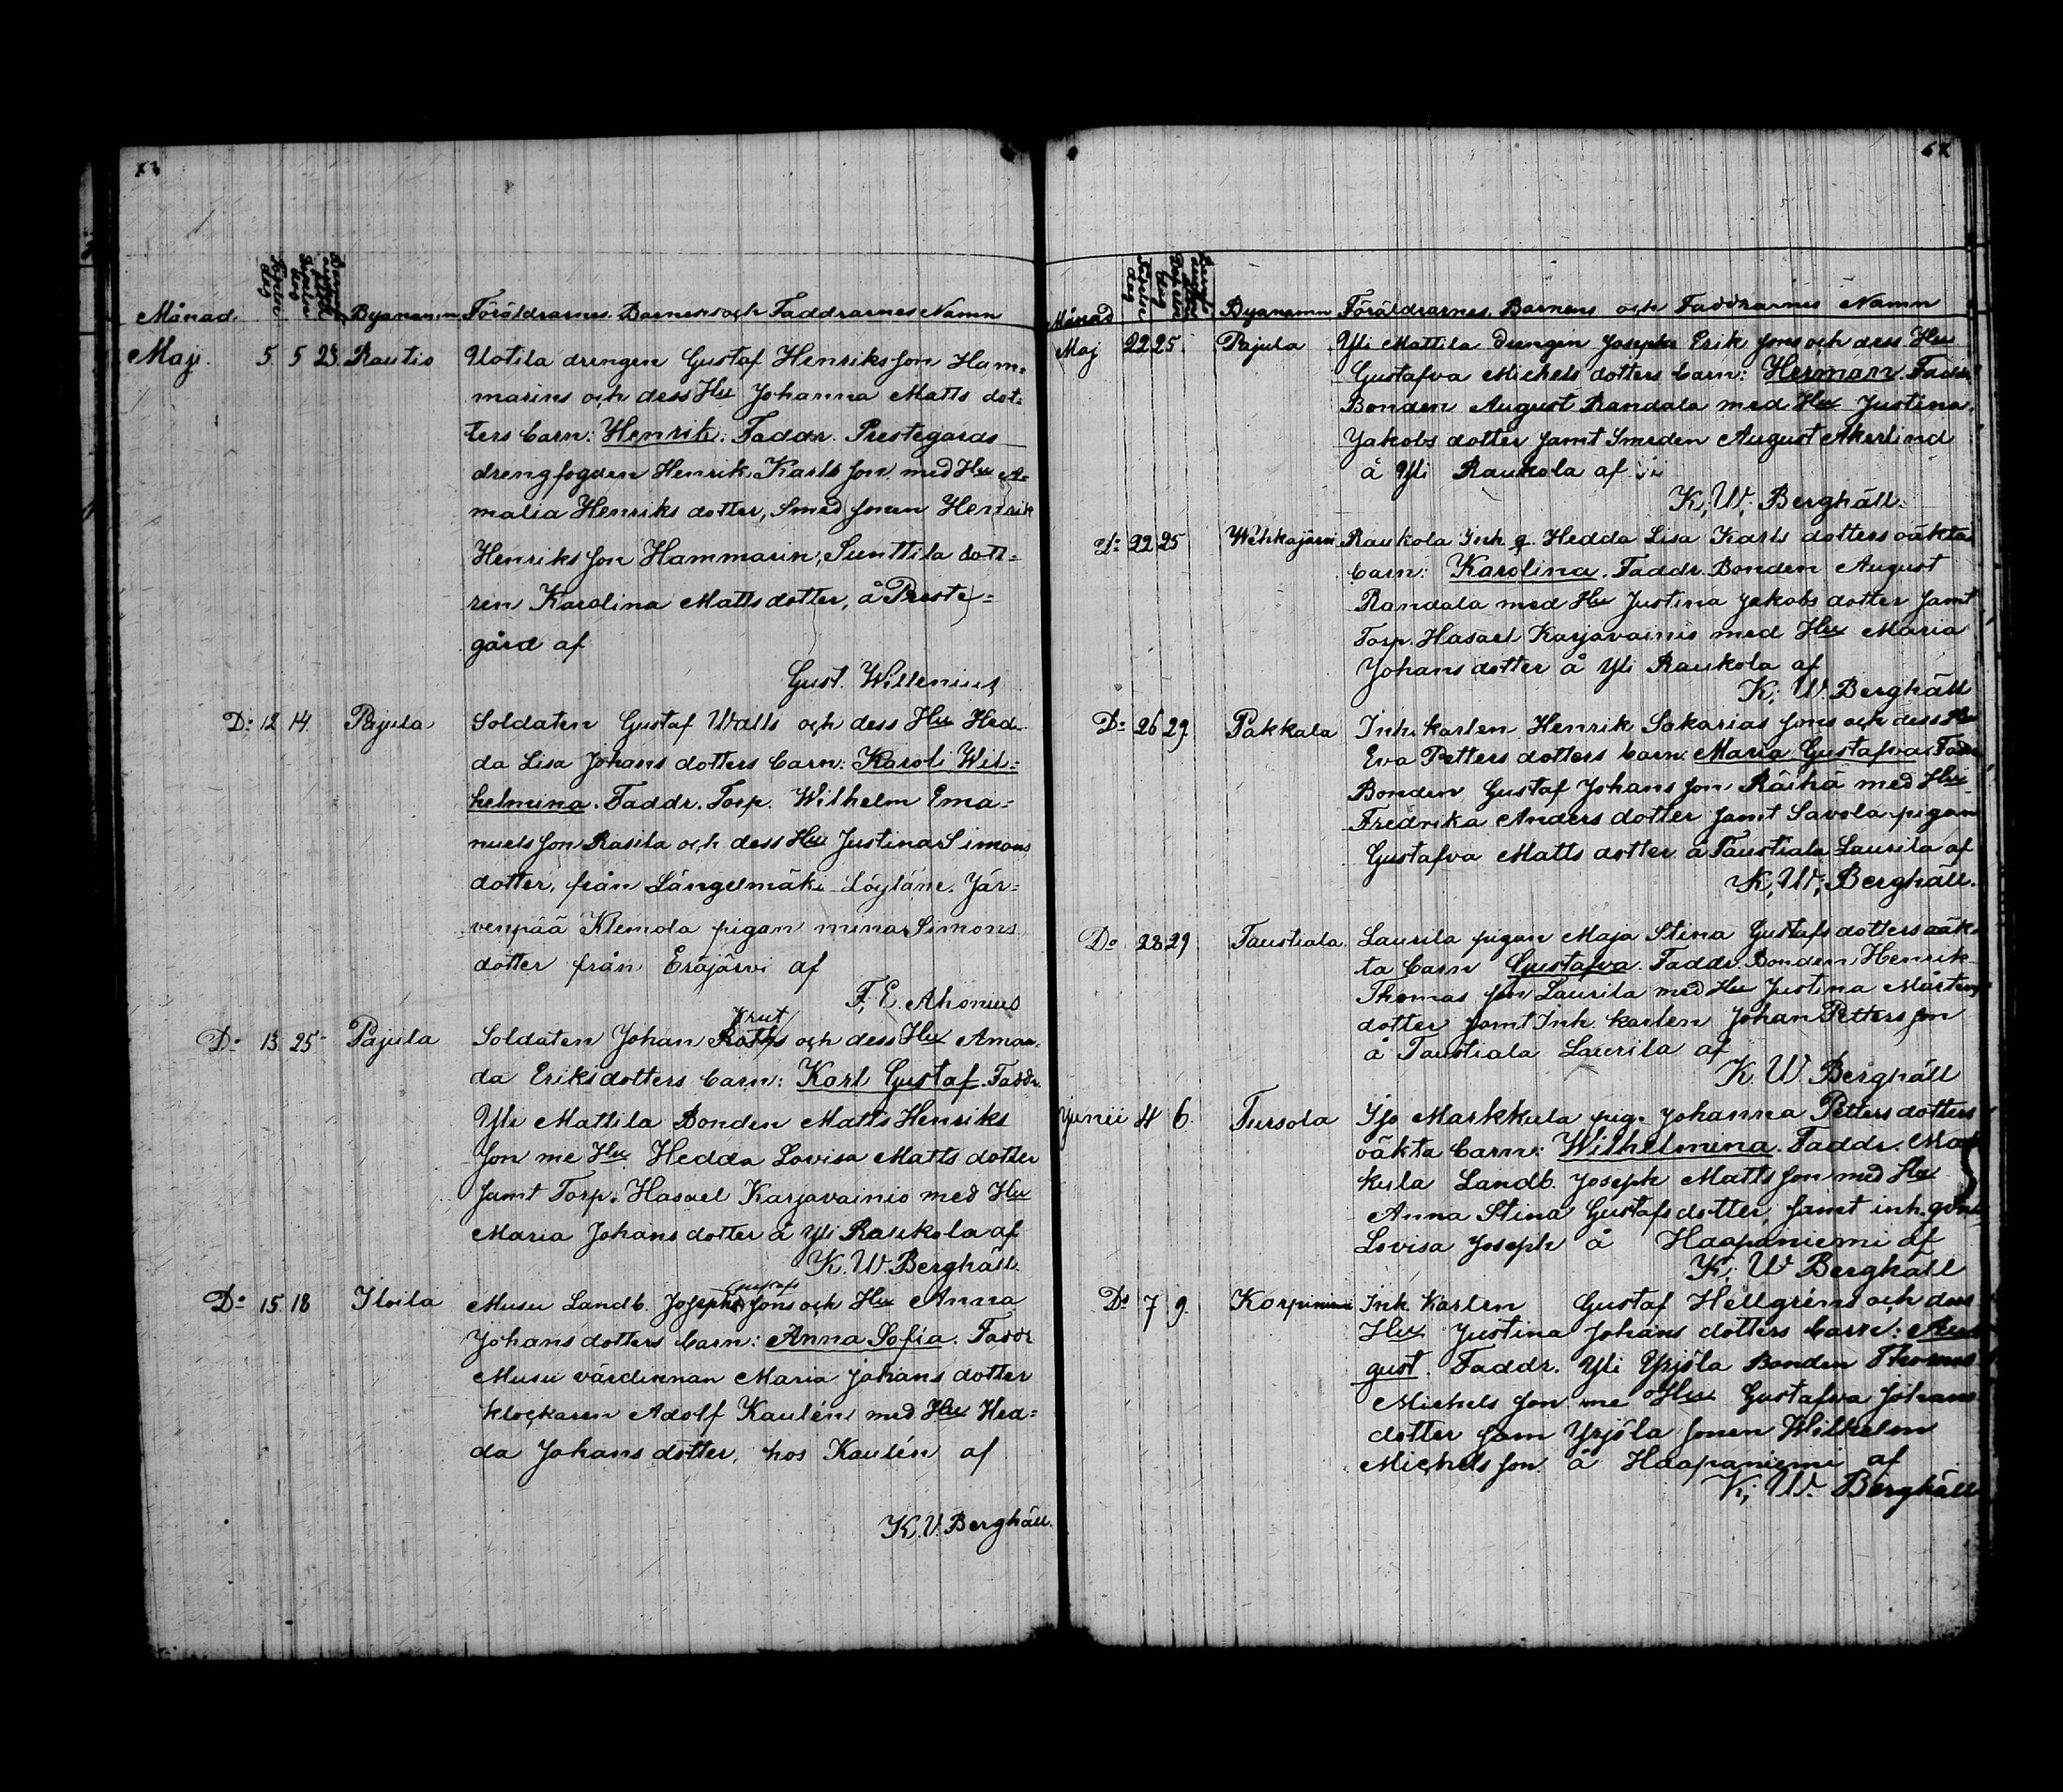 Månad. Födelse dag Byanamn Föräldrarnes. Barnens och Faddrarnes Namn
Maji. 5. 5 23. Rautio Uotila drengen Gustaf Henriks son Ham=
marins och dess Hu Johanna Matts dot=
ters barn: Henrik. Faddr. Prestegards
drengfogden Henrik Karls son med Hu A=
malia Henriks dotter, Smed sonen Henrik
Henriks son Hammarin, Sunttila dott=
ren Karolina Matts dotter, å Preste=
gård af
Gust. Willenius
Do 12 14. Pajula Soldaten Gustaf Walls och dess Hu Hed=
da Lisa Johans dotters barn: Karol. Wil=
helmina. Faddr. Torp. Wilhelm Ema=
nuels son Rasila och dess Hu Justina Simons
dotter, från Längelmäki Löytäne. Jär=
venpää Klemola pigan mina Simons
dotter från Eräjärvi af
F. E. Ahonius
Krut
Do 13 25 Pajula Soldaten Johan Roths och dess Hu Aman=
da Eriksdotters barn: Karl Gustaf. Faddr.
Yli Mattila Bonden Matts Henriks
son me Hu Hedda Lovisa Matts dotter
samt Torp. Hasael Karjavainio med Hu
Maria Johans dotter å Yli Raukola af
K. W. Berghäll.
Gustafs
Do 15 18 Iloila Musu Landb. Josephs sons och Hu Anna
Johans dotters barn: Anna Sofia. Faddr
Musu värdinnan Maria Johans dotter
klockaren Adolf Kaulén med Hu Hed=
da Johans dotter, hos Kaulén af
K. V. Berghäll.
Månad Födelse dag Byanamn Föräldrarnes. Barnens och Faddrarnes Namn
Maj 22 25. Pajula Yli Mattila drengen Josephs Erik sons och dess Hu
Gustafva Michels dotters barn: Herman. Faddr.
Bonden August Randala med Hu Justina
Jakobs dotter samt Smeden August Akerlind
å Yli Raukola af
K. W. Berghäll.
Do 22 25 Wehkajärvi Raukola Inh. q. Hedda Lisa Karls dotters oäkta
barn: Karolina. Faddr. Bonden August
Randala med Hu Justina Jakobs dotter samt
Torp. Hasael Karjavainio med Hu Maria
Johans dotter å Yli Raukola af
K. W. Berghäll
Do 26 29. Pakkala Inh. karlen Henrik Sakarias sons och dess Hu
Eva Petters dotters barn: Maria Gustafva. Faddr
Bonden Gustaf Johans son Räihä med Hu
Fredrika Anders dotter samt Savola pigan
Gustafva Matts dotter å Taustiala Laurila af
K. W. Berghäll.
Do 28 29. Taustiala. Laurila pigan Maja Stina Gustafs dotters oäk=
ta barn Gustafva. Faddr. Bonden Henrik
Thomas son Laurila med Hu Justina Mårtens
dotter samt Inh. karlen Johan Petters son
å Taustiala Laurila af
K. W. Berghäll
Junii 4 6. Tursola Iso Markkula pig. Johanna Petters dotters
oäkta barn: Wilhelmina. Faddr. Mar
kula Landb. Joseph Matts son med Hu
Anna Stina Gustafs dotter, samt inh. qvn
Lovisa Joseph å Haapaniemi af
K. W. Berghäll
Do 7 9. Korpiniemi Inh. Karlen Gustaf Hellgrens och dess
Hu Justina Johans dotters barn: Au
gust. Faddr. Yli Yrjölä Bonden Thomas
Michels son me Hu Gustafva Johans
dotter sam Yrjölä sonen Wilhelm
Michels son å Haapaniemi af
K. W. Berghäll